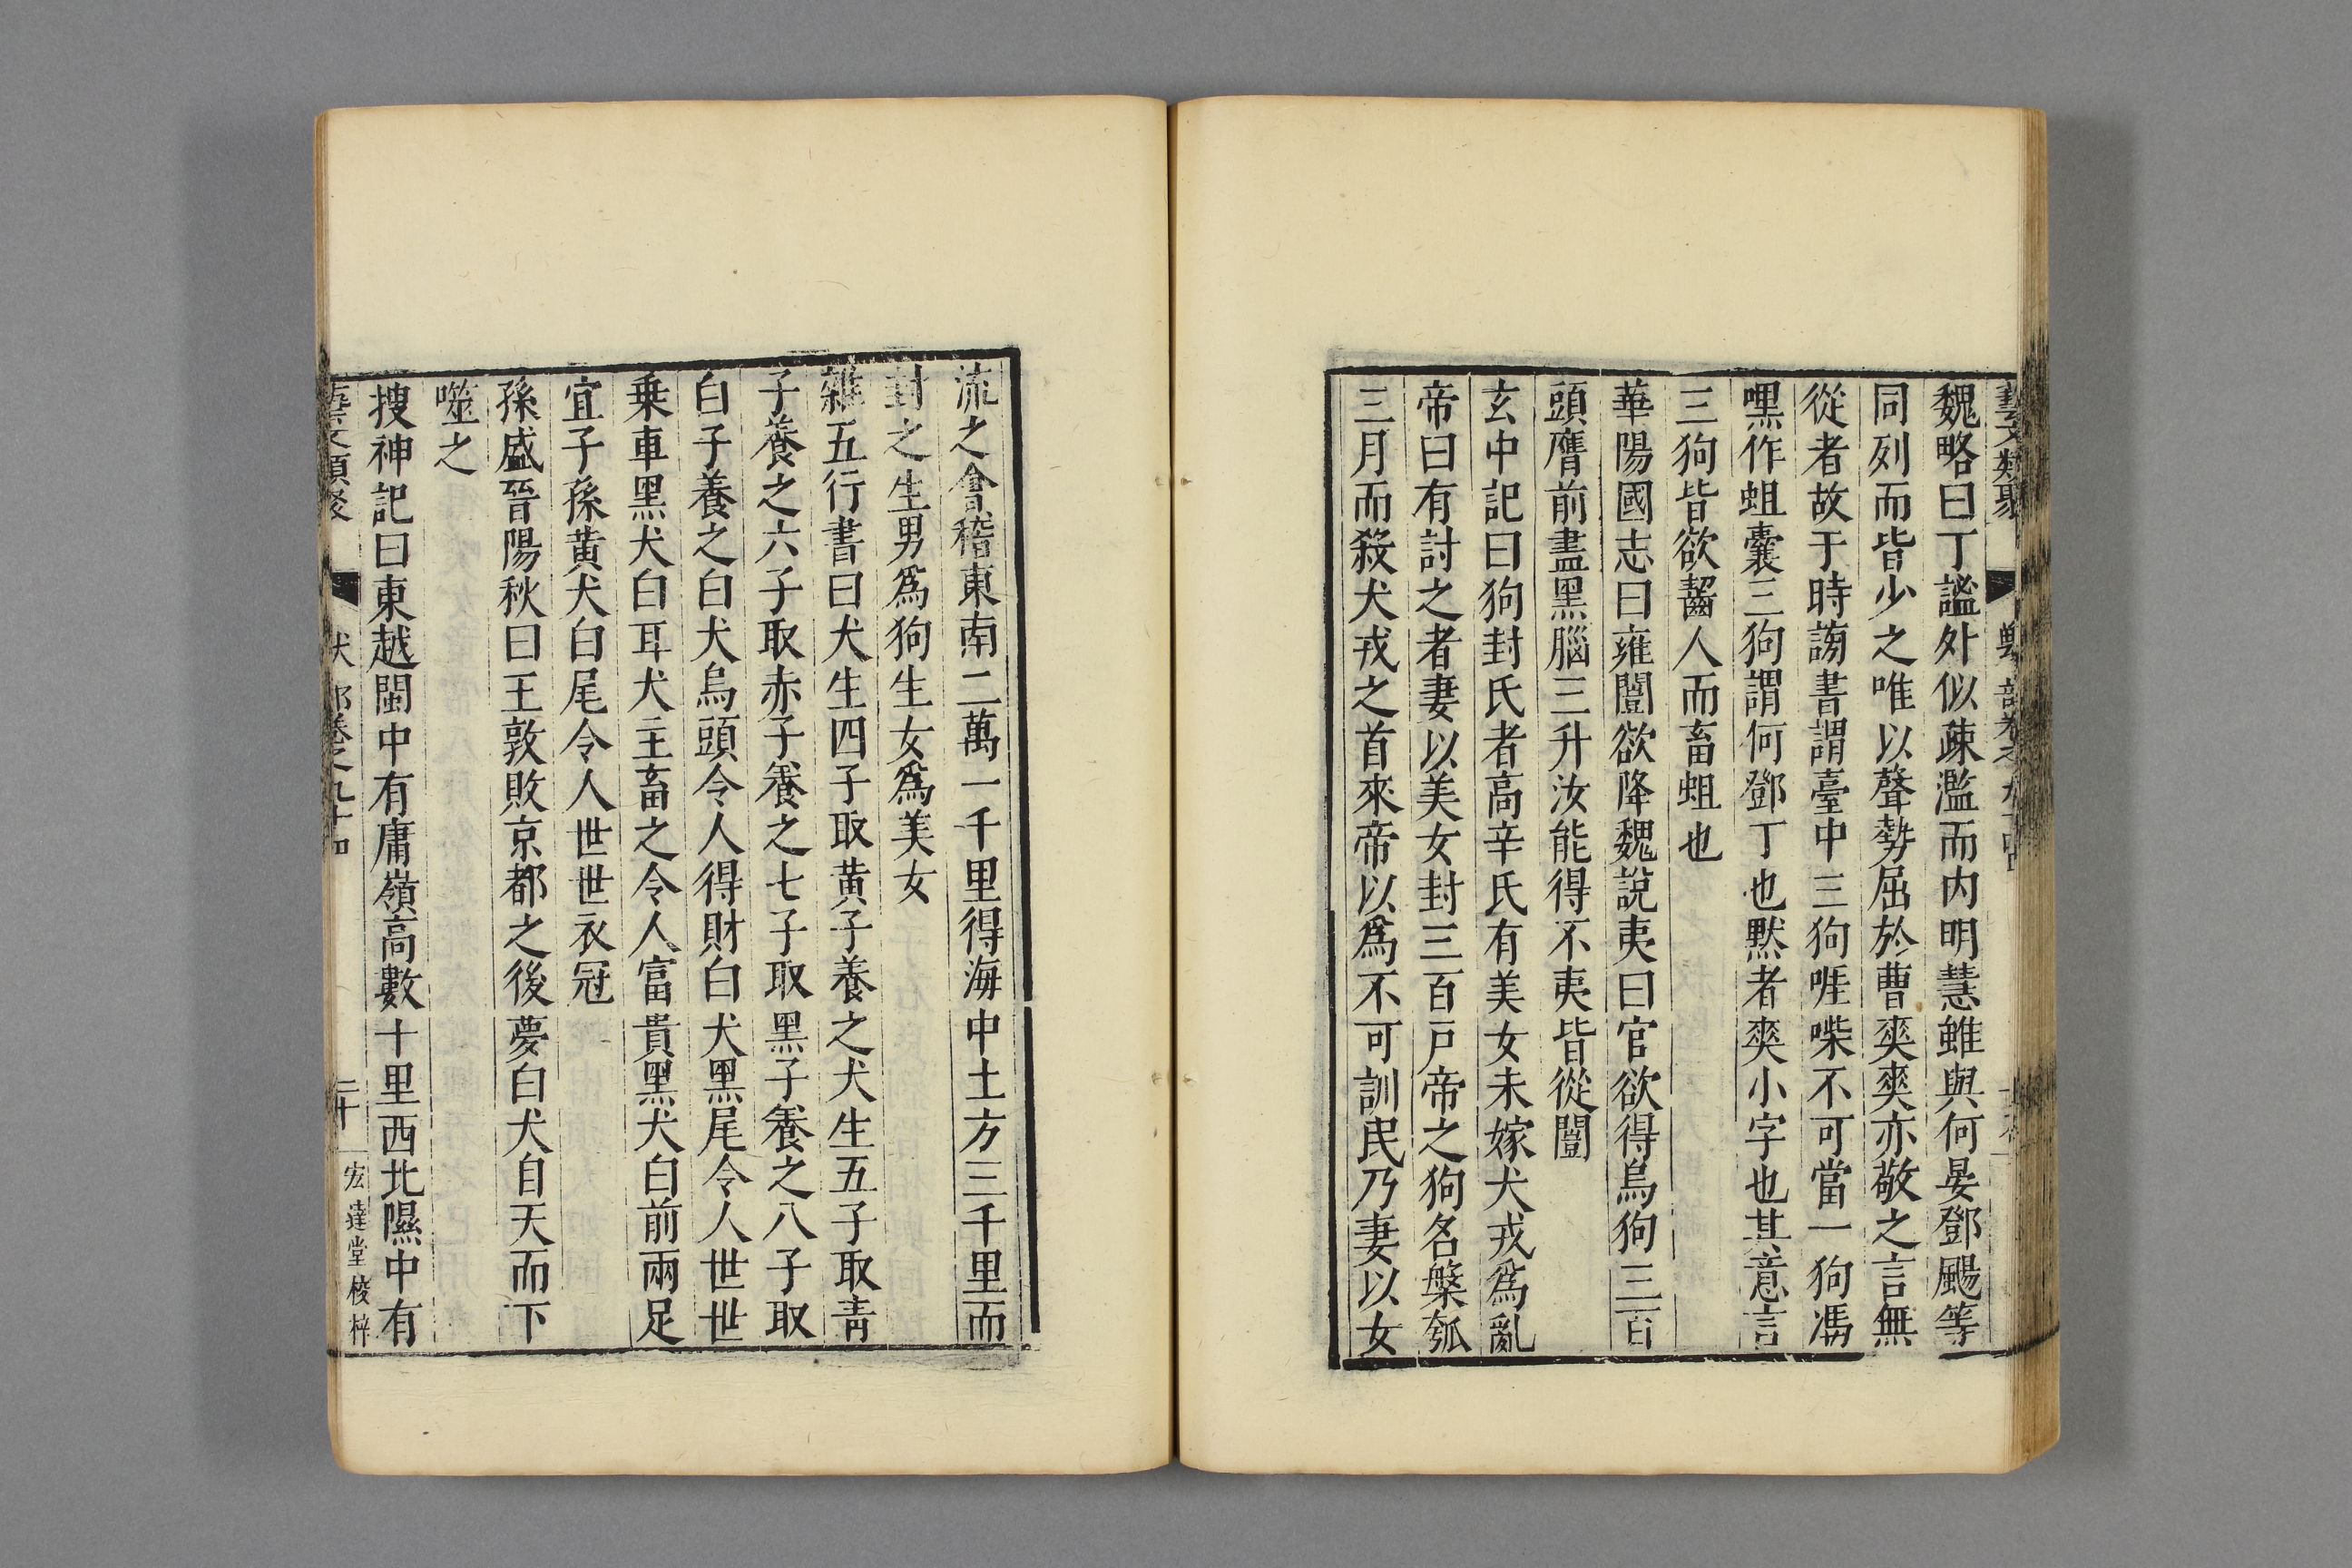 藝文類聚 獸部卷之九十四
魏略曰丁謐外似疎濫而内明慧雖與何晏鄧颺等
同列而皆少之唯以聲勢屈於曹爽爽亦敬之言無
從者故于時謗書謂臺中三狗啀喍不可當一狗馮
嘿作蛆囊三狗謂何鄧丁也默者爽小字也其意言
三狗皆欲齧人而畜蛆也
華陽國志曰雍闓欲降魏說夷曰官欲得烏狗三百
頭膺前盡黑腦三升汝能得不夷皆從闓
玄中記曰狗封氏者高辛氏有美女未嫁犬戎為亂
帝曰有討之者妻以美女封三百戸帝之狗名槃瓠
三月而殺犬戎之首來帝以爲不可訓民乃妻以女
流之會稽東南二萬一千里得海中土方三千里而
封之生男爲狗生女爲美女
雜五行書曰犬生四子取黄子養之犬生五子取青
子養之六子取赤子養之七子取黑子養之八子取
白子養之白犬烏頭令人得財白犬黑尾令人世世
乗車黑犬白耳犬主畜之令人富貴黑犬白前兩足
宜子孫黄犬白尾令人世世衣冠
孫盛晉陽秋曰王敦敗京都之後夢白犬自天而下
噬之
搜神記曰東越閩中有庸嶺高數十里西北隰中有
藝文類聚 犬 部卷之九十四 二十 宏達堂校梓